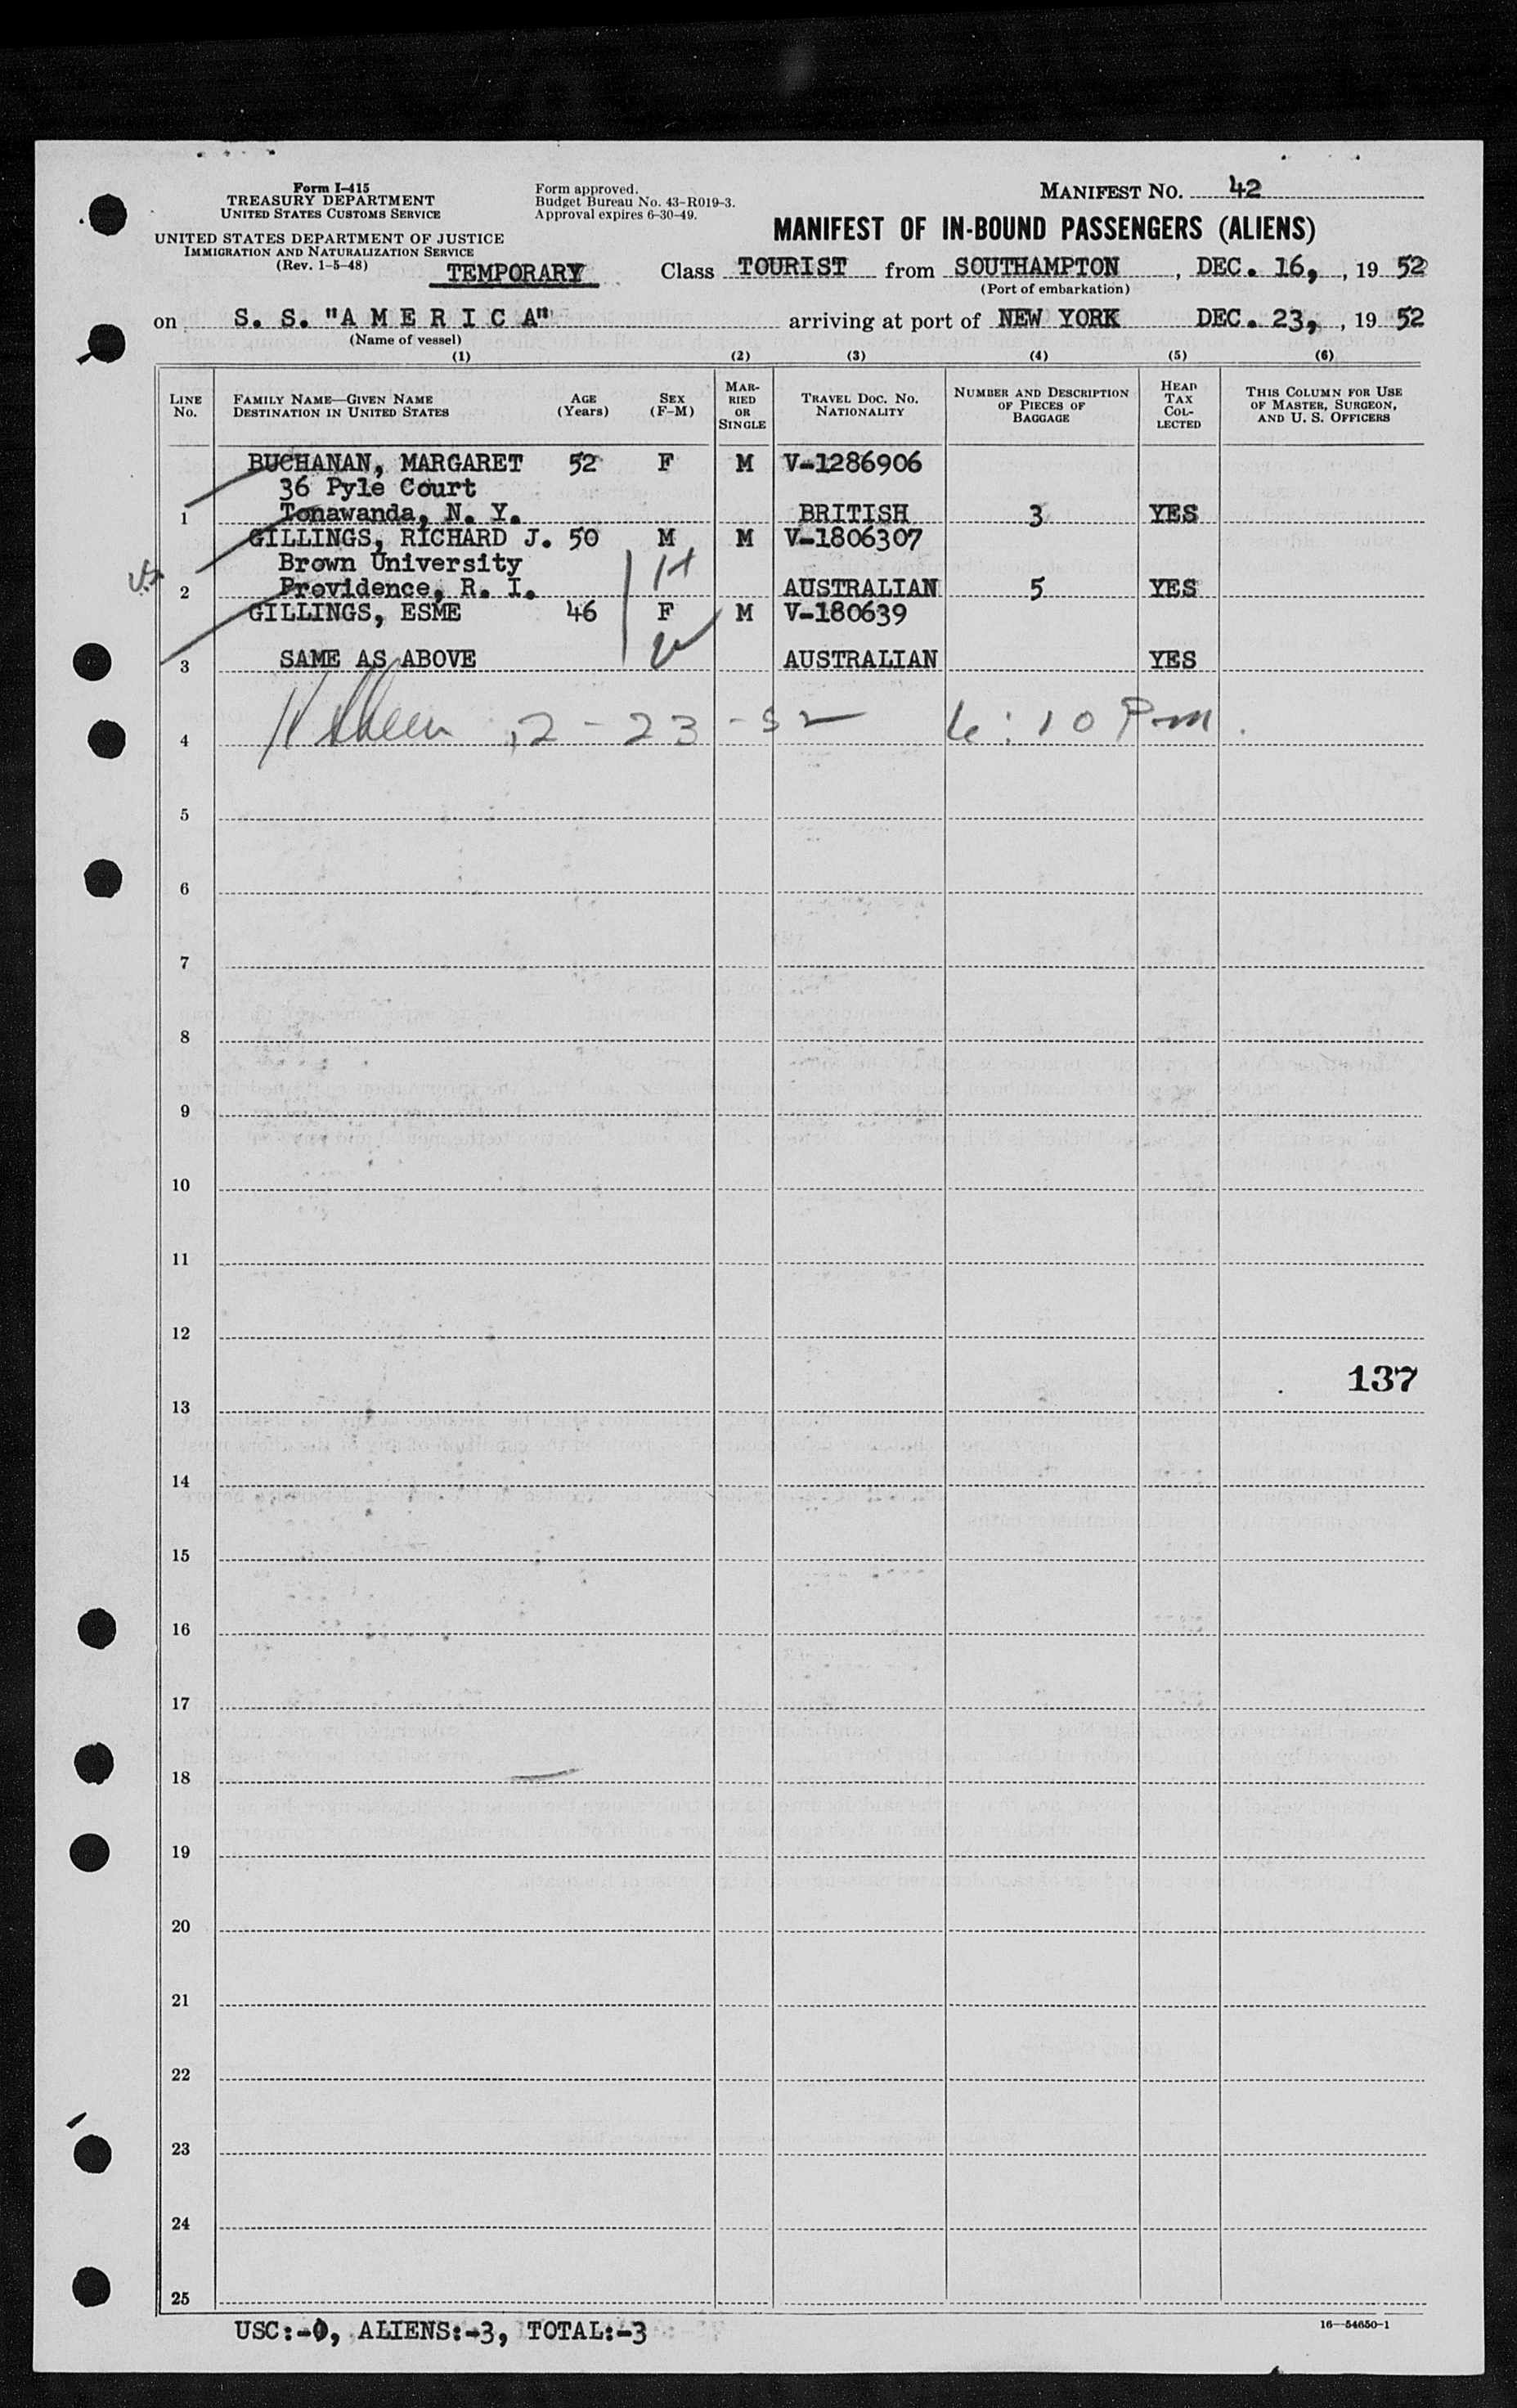 Form I-415
TREASURY DEPARTMENT
UNITED STATES CUSTOMS SERVICE
UNITED STATES DEPARTMENT OF JUSTICE
IMMIGRATION AND NATURALIZATION SERVICE
(Rev. 1-5-48)
TEMPORARY
Form approved.
Budget Bureau No. 43-R019-3.
Approval expires 6-30-49.
MANIFEST NO. 42
MANIFEST OF IN-BOUND PASSENGERS (ALIENS)
Class TOURIST from SOUTHAMPTON, DEC. 16, , 19 52
(Port of embarkation)
on S. S. "A M E R I C A" arriving at port of NEW YORK DEC. 23, , 19 52
(Name of vessel)
(1) (2) (3) (4) (5) (6)
LINE No. FAMILY NAME—GIVEN NAME DESTINATION IN UNITED STATES AGE (Years) SEX (F-M) MARRIED OR SINGLE TRAVEL DOC. NO. NATIONALITY NUMBER AND DESCRIPTION OF PIECES OF BAGGAGE HEAD TAX COLLECTED THIS COLUMN FOR USE OF MASTER, SURGEON, AND U. S. OFFICERS
BUCHANAN, MARGARET 52 F M V-1286906
36 Pyle Court
1 Tonawanda, N. Y. BRITISH 3 YES
GILLINGS, RICHARD J. 50 M M V-1806307
Brown University H
2 Providence, R. I. AUSTRALIAN 5 YES
GILLINGS, ESME 46 F M V-180639
3 SAME AS ABOVE W AUSTRALIAN YES
4 12-23-52 6:10 Pm.
5
6
7
8
9
10
11
12
137
13
14
15
16
17
18
19
20
21
22
23
24
25
USC:-0, ALIENS:-3, TOTAL:-3
16—54650-1